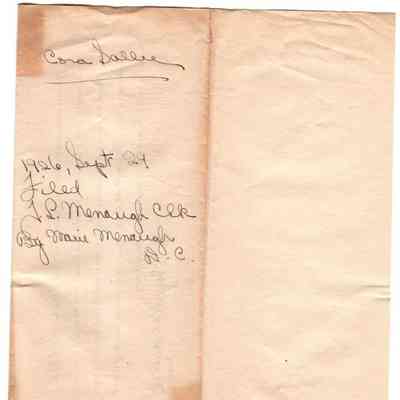 Cora Sallee
1926, Sept 24
Filed
J S. Menaugh Clk
By Marie Menaugh
D. C.